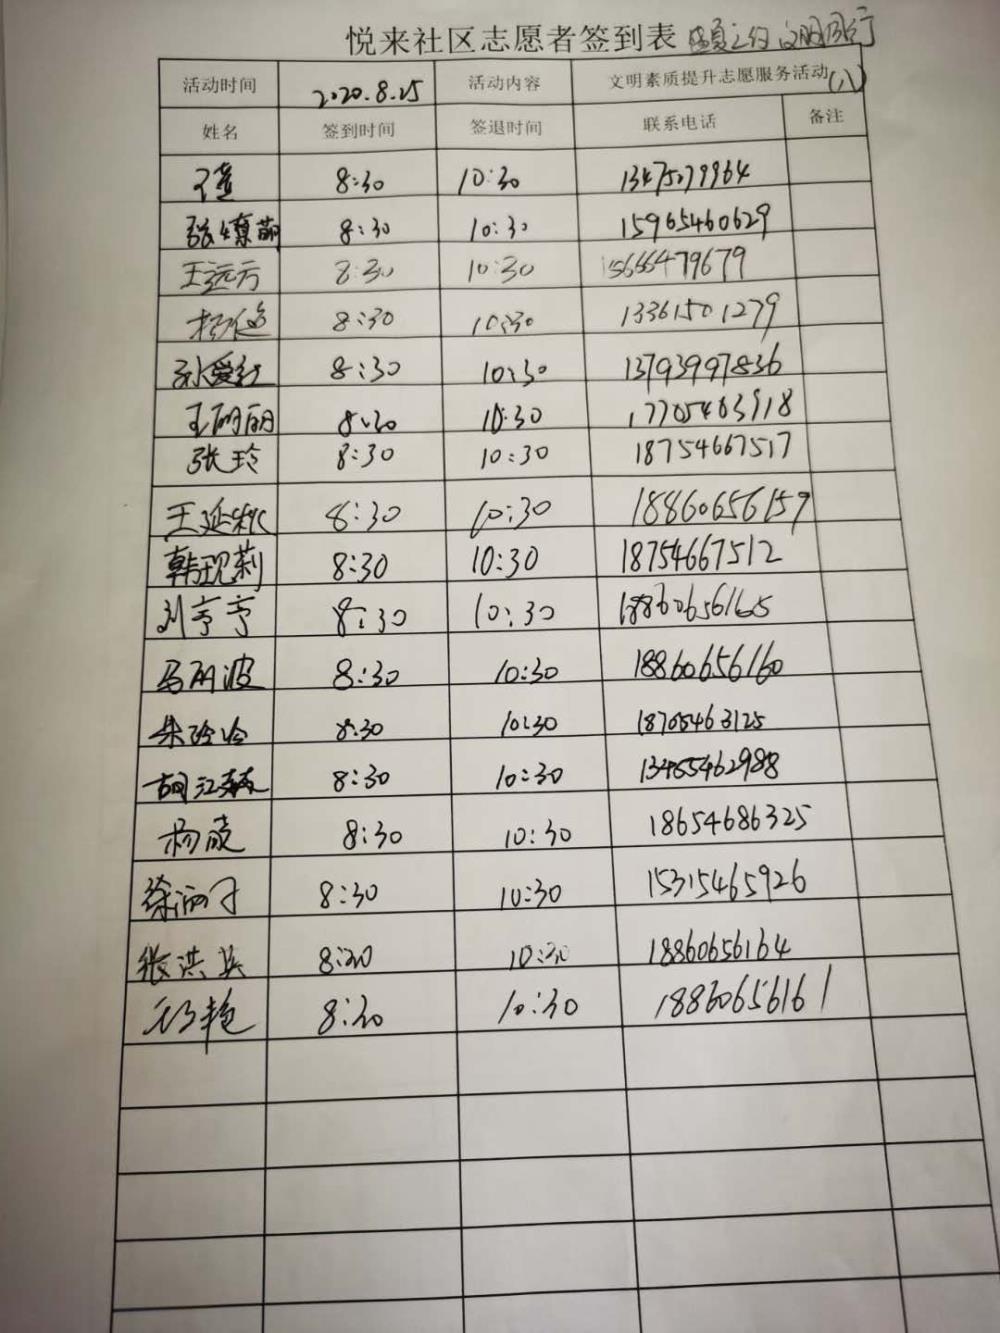 悦来社区志愿者签到表 盛夏之约 文明同行
活动时间 2020.8.25 活动内容 文明素质提升志愿服务活动(八)
姓名 签到时间 签退时间 联系电话 备注
8:30 10:30 13475079964
8:30 10:30 15965460629
王远方 8:30 10:30 15666479679
8:30 10:30 13361501279
孙爱红 8:30 10:30 13793997836
王丽丽 8:30 10:30 17705463918
张玲 8:30 10:30 18754667517
王延秋 8:30 10:30 18860656159
韩现莉 8:30 10:30 18754667512
刘亭亭 8:30 10:30 18860656165
马丽波 8:30 10:30 18860656160
朱玲玲 8:30 10:30 18705463125
8:30 10:30 13465462988
杨晓 8:30 10:30 18654686325
徐丽子 8:30 10:30 15315465926
张洪兵 8:30 10:30 18860656164
8:30 10:30 18860656161